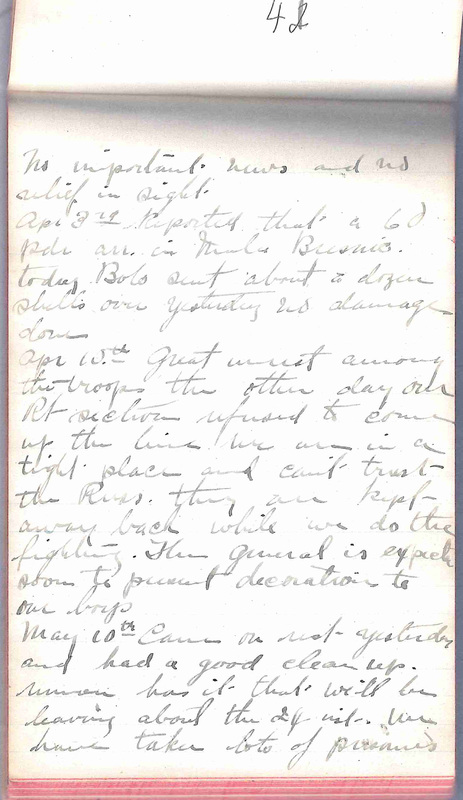 42
No important news and no
relief in sight.
Apr 3rd Reported that a 60
pdr arr. in
today Bolo sent about a dozen
shells over yesterday no damage
done
Apr 10th Great unrest among
the troops the other day our
Rt section refused to come
up the line we are in a
tight place and can't trust
the Russ. they are kept
away back while we do the
fighting. The General is expected
soon to present decoration to
our boys
May 10th Came on rest yesterday
and had a good clean up.
rumor has it that we'll be
leaving about the 24 inst. We
have taken lots of prisoners